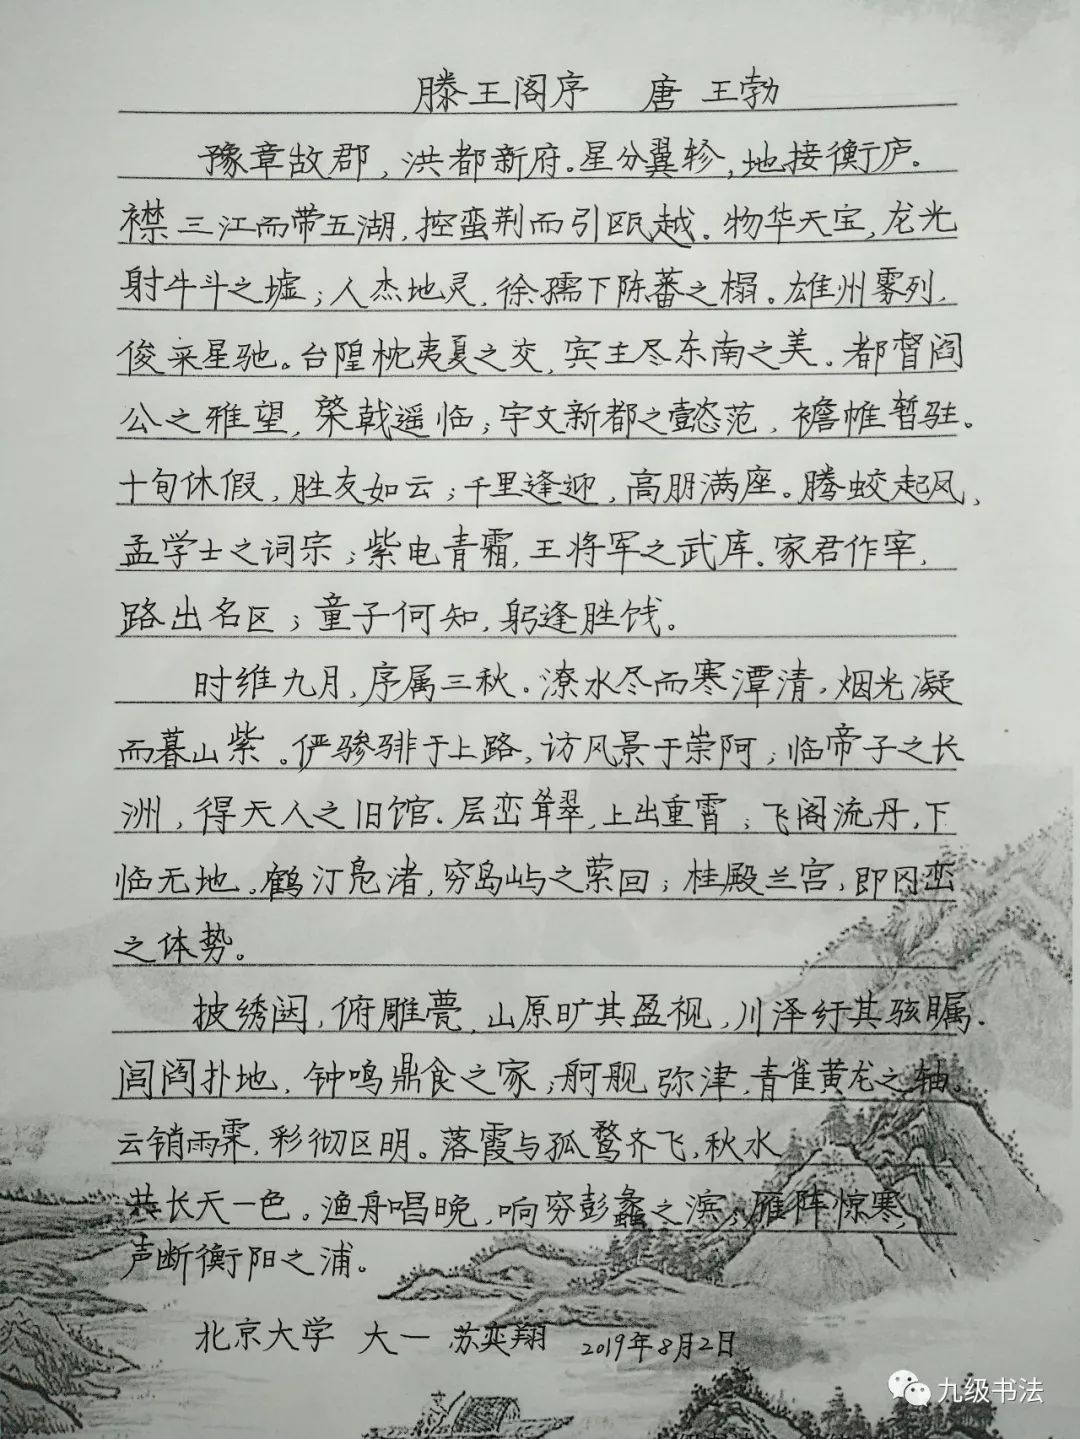 滕王阁序 唐 王勃
豫章故郡,洪都新府。星分翼轸,地接衡庐。
襟三江而带五湖,控蛮荆而引瓯越。物华天宝,龙光
射牛斗之墟;人杰地灵,徐孺下陈蕃之榻。雄州雾列,
俊采星驰。台隍枕夷夏之交,宾主尽东南之美。都督阎
公之雅望,棨戟遥临;宇文新都之懿范,襜帷暂驻。
十旬休假,胜友如云;千里逢迎,高朋满座。腾蛟起凤,
孟学士之词宗;紫电青霜,王将军之武库。家君作宰,
路出名区;童子何知,躬逢胜饯。
时维九月,序属三秋。潦水尽而寒潭清,烟光凝
而暮山紫。俨骖騑于上路,访风景于崇阿;临帝子之长
洲,得天人之旧馆。层峦耸翠,上出重霄;飞阁流丹,下
临无地。鹤汀凫渚,穷岛屿之萦回;桂殿兰宫,即冈峦
之体势。
披绣闼,俯雕甍,山原旷其盈视,川泽纡其骇瞩。
闾阎扑地,钟鸣鼎食之家;舸舰弥津,青雀黄龙之轴。
云销雨霁,彩彻区明。落霞与孤鹜齐飞,秋水
共长天一色。渔舟唱晚,响穷彭蠡之滨;雁阵惊寒,
声断衡阳之浦。
北京大学 大一 苏奕翔 2019年8月2日
九级书法